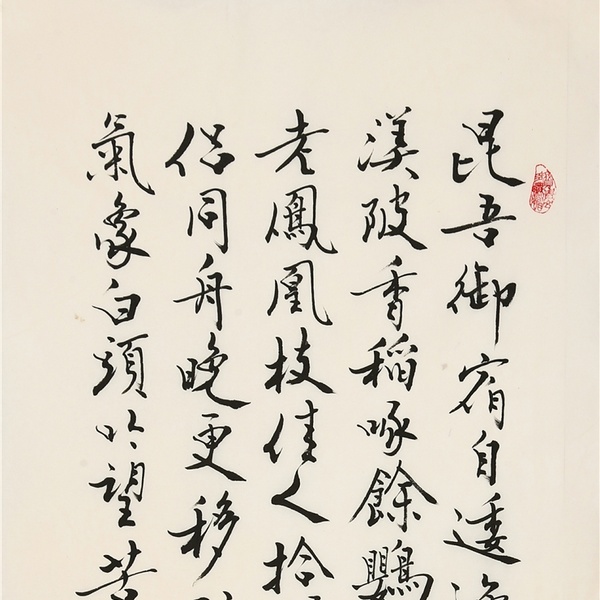 昆吾御宿自逶
渼陂香稻啄餘鸚
老鳳凰枝佳人拾
侶同舟晚更移
氣象白頭吟望苦